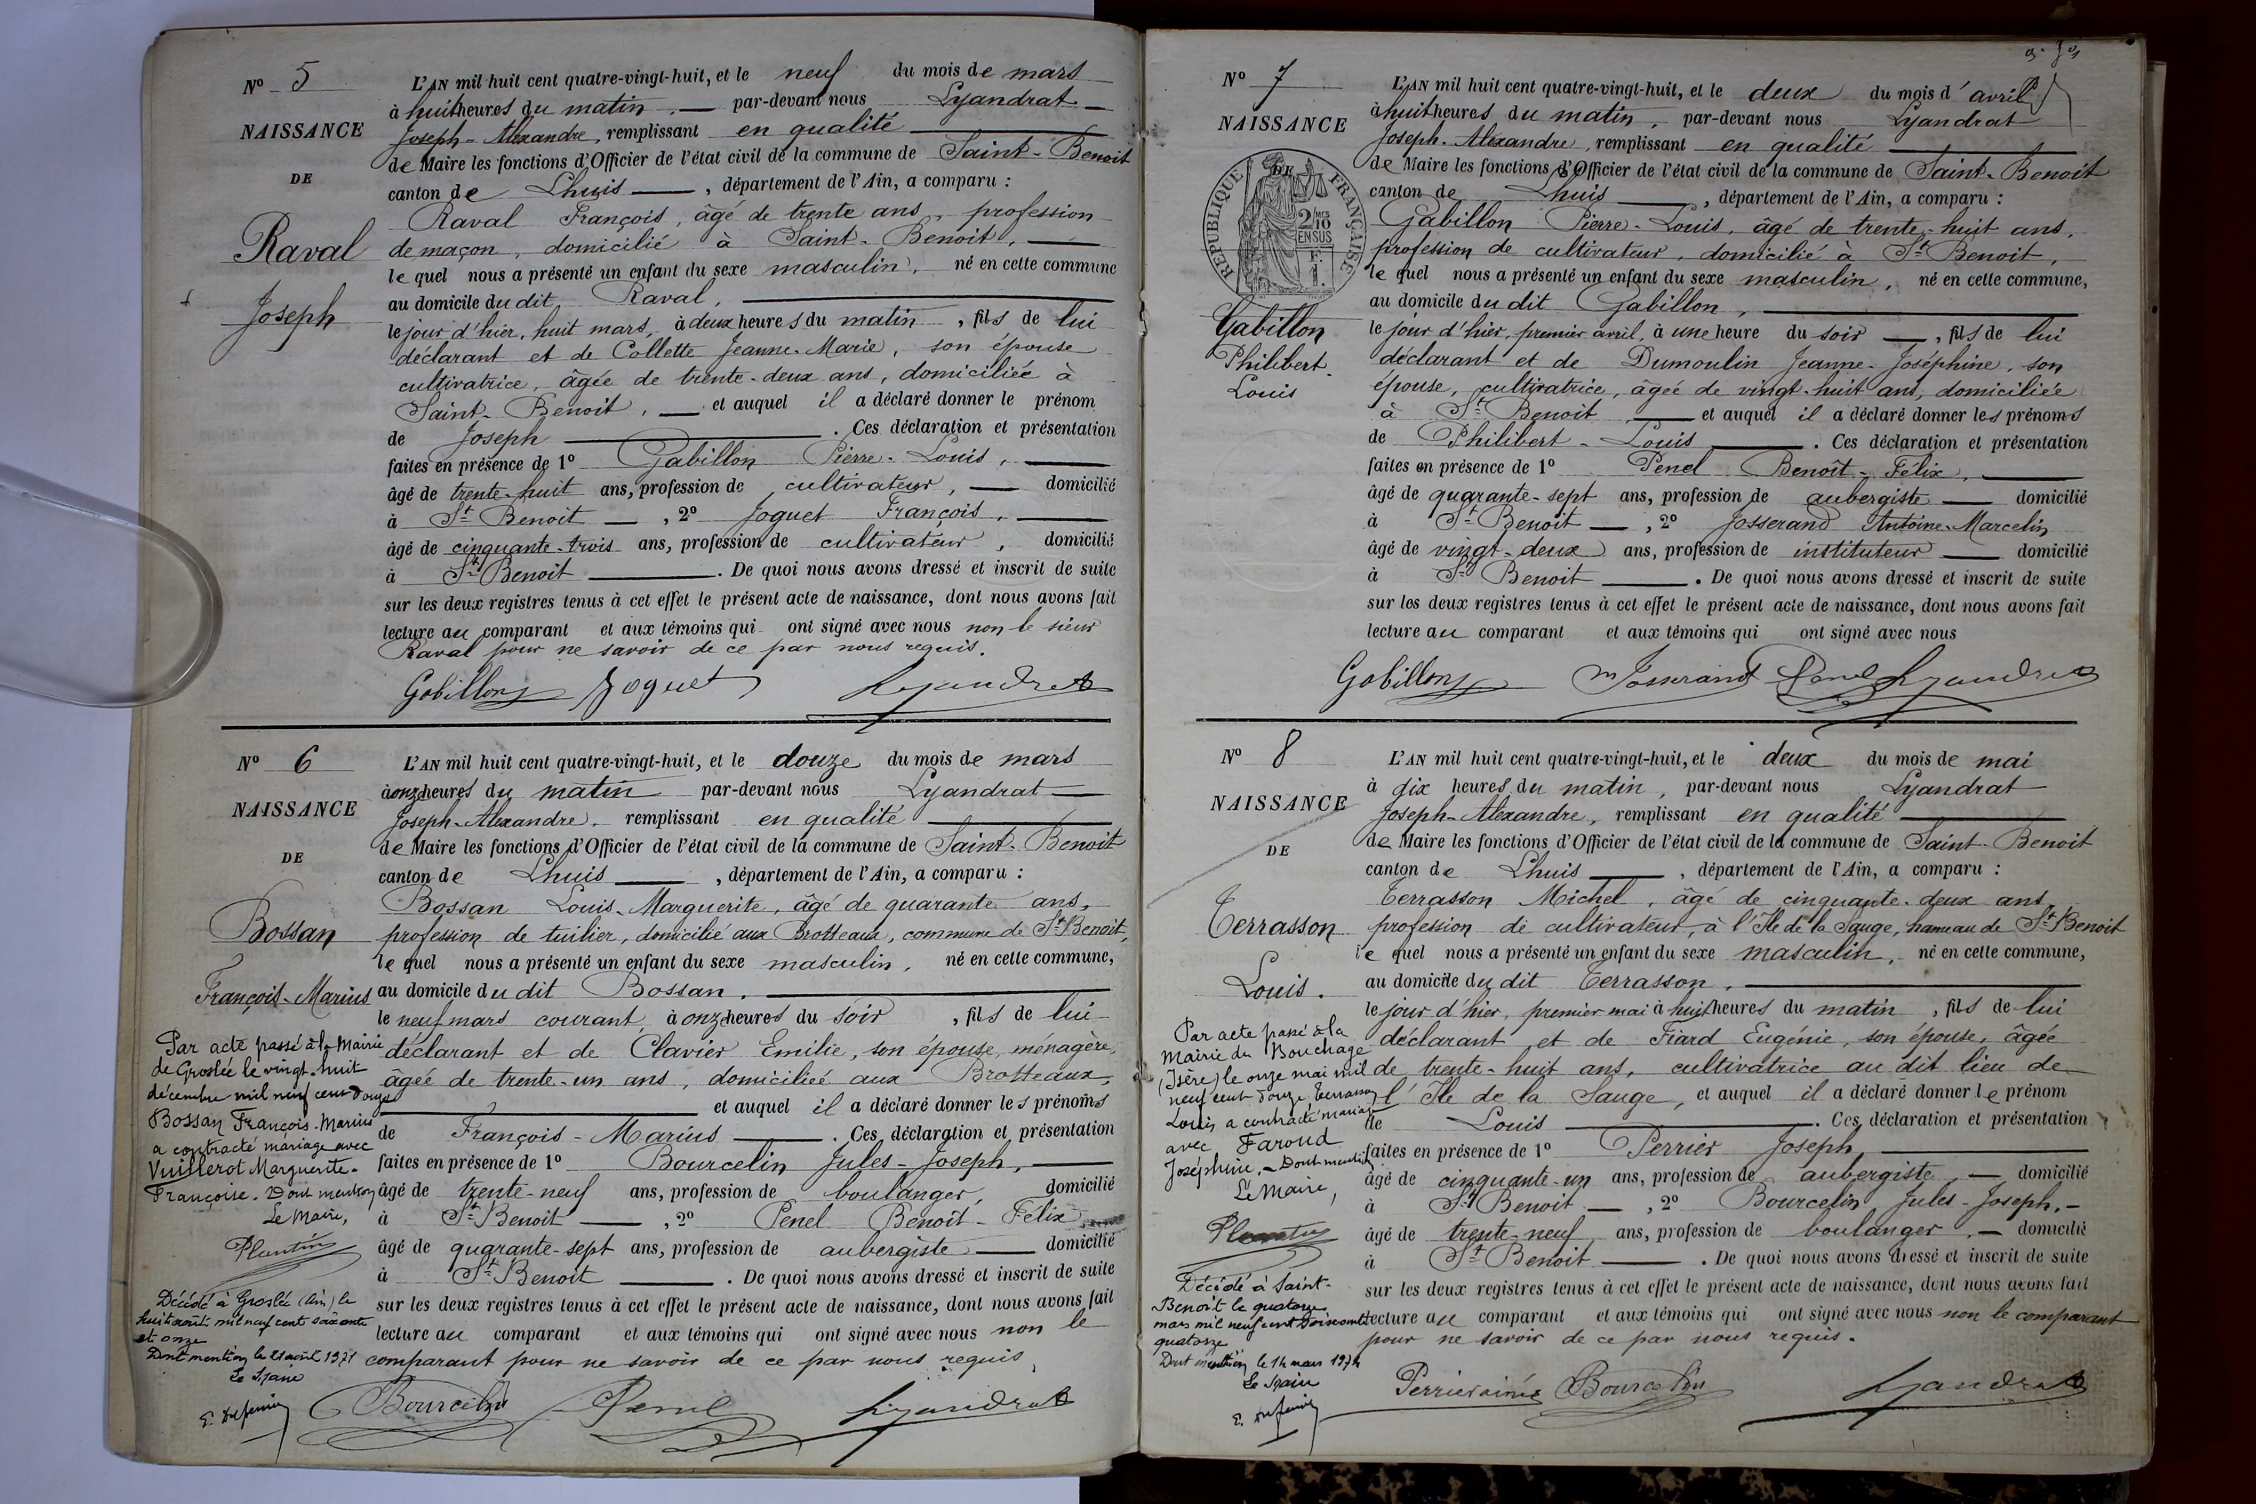 N° 5
NAISSANCE
DE
Raval
Joseph
L'AN mil huit cent quatre-vingt-huit, et le neuf du mois de mars
à huit heures du matin, par-devant nous Lyandrat
Joseph-Alexandre, remplissant en qualité
de Maire les fonctions d'Officier de l'état civil de la commune de Saint-Benoit
canton de Lhuis, département de l'Ain, a comparu :
Raval François, âgé de trente ans, profession
de maçon, domicilié à Saint-Benoit,
lequel nous a présenté un enfant du sexe masculin, né en cette commune
au domicile du dit Raval,
le jour d'hier, huit mars, à deux heures du matin, fils de lui
déclarant et de Collette Jeanne-Marie, son épouse
cultivatrice, âgée de trente-deux ans, domiciliée à
Saint-Benoit, et auquel il a déclaré donner le prénom
de Joseph. Ces déclaration et présentation
faites en présence de 1° Gabillon Pierre-Louis,
âgé de trente-huit ans, profession de cultivateur, domicilié
à St Benoit, 2° Joguet François,
âgé de cinquante-trois ans, profession de cultivateur, domicilié
à St Benoit. De quoi nous avons dressé et inscrit de suite
sur les deux registres tenus à cet effet le présent acte de naissance, dont nous avons fait
lecture au comparant et aux témoins qui ont signé avec nous non le sieur
Raval pour ne savoir de ce par nous requis.
Gabillon Joguet Lyandrat
N° 6
NAISSANCE
DE
Bossan
François-Marius
Par acte passé à la Mairie
de Groslée le vingt-huit
décembre mil neuf cent douze
Bossan François-Marius
a contracté mariage avec
Vuillerot Marguerite-
Françoise. Dont mention
Le Maire,
Plantin
Décédé à Groslée (Ain) le
huit août mil neuf cent soixante
et onze
Dont mention le 21 août 1971
Le Maire
L'AN mil huit cent quatre-vingt-huit, et le douze du mois de mars
à onze heures du matin par-devant nous Lyandrat
Joseph-Alexandre, remplissant en qualité
de Maire les fonctions d'Officier de l'état civil de la commune de Saint-Benoit
canton de Lhuis, département de l'Ain, a comparu :
Bossan Louis-Marguerite, âgé de quarante ans,
profession de tuilier, domicilié aux Brotteaux, commune de St Benoit,
lequel nous a présenté un enfant du sexe masculin, né en cette commune,
au domicile du dit Bossan.
le neuf mars courant, à onze heures du soir, fils de lui
déclarant et de Clavier Emilie, son épouse, ménagère,
âgée de trente-un ans, domiciliée aux Brotteaux,
et auquel il a déclaré donner les prénoms
de François-Marius. Ces déclaration et présentation
faites en présence de 1° Bourcelin Jules-Joseph,
âgé de trente-neuf ans, profession de boulanger, domicilié
à St Benoit, 2° Penel Benoît-Félix
âgé de quarante-sept ans, profession de aubergiste domicilié
à St Benoit. De quoi nous avons dressé et inscrit de suite
sur les deux registres tenus à cet effet le présent acte de naissance, dont nous avons fait
lecture au comparant et aux témoins qui ont signé avec nous non le
comparant pour ne savoir de ce par nous requis,
Bourcelin Penel Lyandrat
N° 7
NAISSANCE
DE
RÉPUBLIQUE FRANÇAISE
2/10 MES
EN SUS
Gabillon
Philibert-
Louis
L'AN mil huit cent quatre-vingt-huit, et le deux du mois d'avril
à huit heures du matin, par-devant nous Lyandrat
Joseph-Alexandre, remplissant en qualité
de Maire les fonctions d'Officier de l'état civil de la commune de Saint-Benoit
canton de Lhuis, département de l'Ain, a comparu :
Gabillon Pierre-Louis, âgé de trente-huit ans,
profession de cultivateur, domicilié à St Benoit,
lequel nous a présenté un enfant du sexe masculin, né en cette commune,
au domicile du dit Gabillon,
le jour d'hier, premier avril, à une heure du soir, fils de lui
déclarant et de Dumoulin Jeanne-Joséphine, son
épouse, cultivatrice, âgée de vingt-huit ans, domiciliée
à St Benoit et auquel il a déclaré donner les prénoms
de Philibert-Louis. Ces déclaration et présentation
faites en présence de 1° Penel Benoît-Félix,
âgé de quarante-sept ans, profession de aubergiste domicilié
à St Benoit, 2° Josserand Antoine-Marcelin
âgé de vingt-deux ans, profession de instituteur domicilié
à St Benoit. De quoi nous avons dressé et inscrit de suite
sur les deux registres tenus à cet effet le présent acte de naissance, dont nous avons fait
lecture au comparant et aux témoins qui ont signé avec nous
Gabillon Josserand Penel Lyandrat
N° 8
NAISSANCE
DE
Terrasson
Louis.
Par acte passé à la
Mairie du Bouchage
(Isère) le onze mai mil
neuf cent douze, Terrasson
Louis a contracté mariage
avec Faroud
Joséphine. Dont mention
Le Maire,
Plantin
Décédé à Saint-
Benoit le quatorze
mars mil neuf cent soixante
quatorze
Dont mention le 14 mars 1974
Le Maire
L'AN mil huit cent quatre-vingt-huit, et le deux du mois de mai
à dix heures du matin, par-devant nous Lyandrat
Joseph-Alexandre, remplissant en qualité
de Maire les fonctions d'Officier de l'état civil de la commune de Saint-Benoit
canton de Lhuis, département de l'Ain, a comparu :
Terrasson Michel, âgé de cinquante-deux ans
profession de cultivateur, à l'Ile de la Sauge, hameau de St Benoit
lequel nous a présenté un enfant du sexe masculin, né en cette commune,
au domicile du dit Terrasson,
le jour d'hier, premier mai à huit heures du matin, fils de lui
déclarant et de Fiard Eugénie, son épouse, âgée
de trente-huit ans, cultivatrice au dit lieu de
l'Ile de la Sauge, et auquel il a déclaré donner le prénom
de Louis. Ces déclaration et présentation
faites en présence de 1° Perrier Joseph,
âgé de cinquante-un ans, profession de aubergiste, domicilié
à St Benoit, 2° Bourcelin Jules-Joseph,
âgé de trente-neuf ans, profession de boulanger, domicilié
à St Benoit. De quoi nous avons dressé et inscrit de suite
sur les deux registres tenus à cet effet le présent acte de naissance, dont nous avons fait
lecture au comparant et aux témoins qui ont signé avec nous non le comparant
pour ne savoir de ce par nous requis.
Perrier aîné Bourcelin Lyandrat